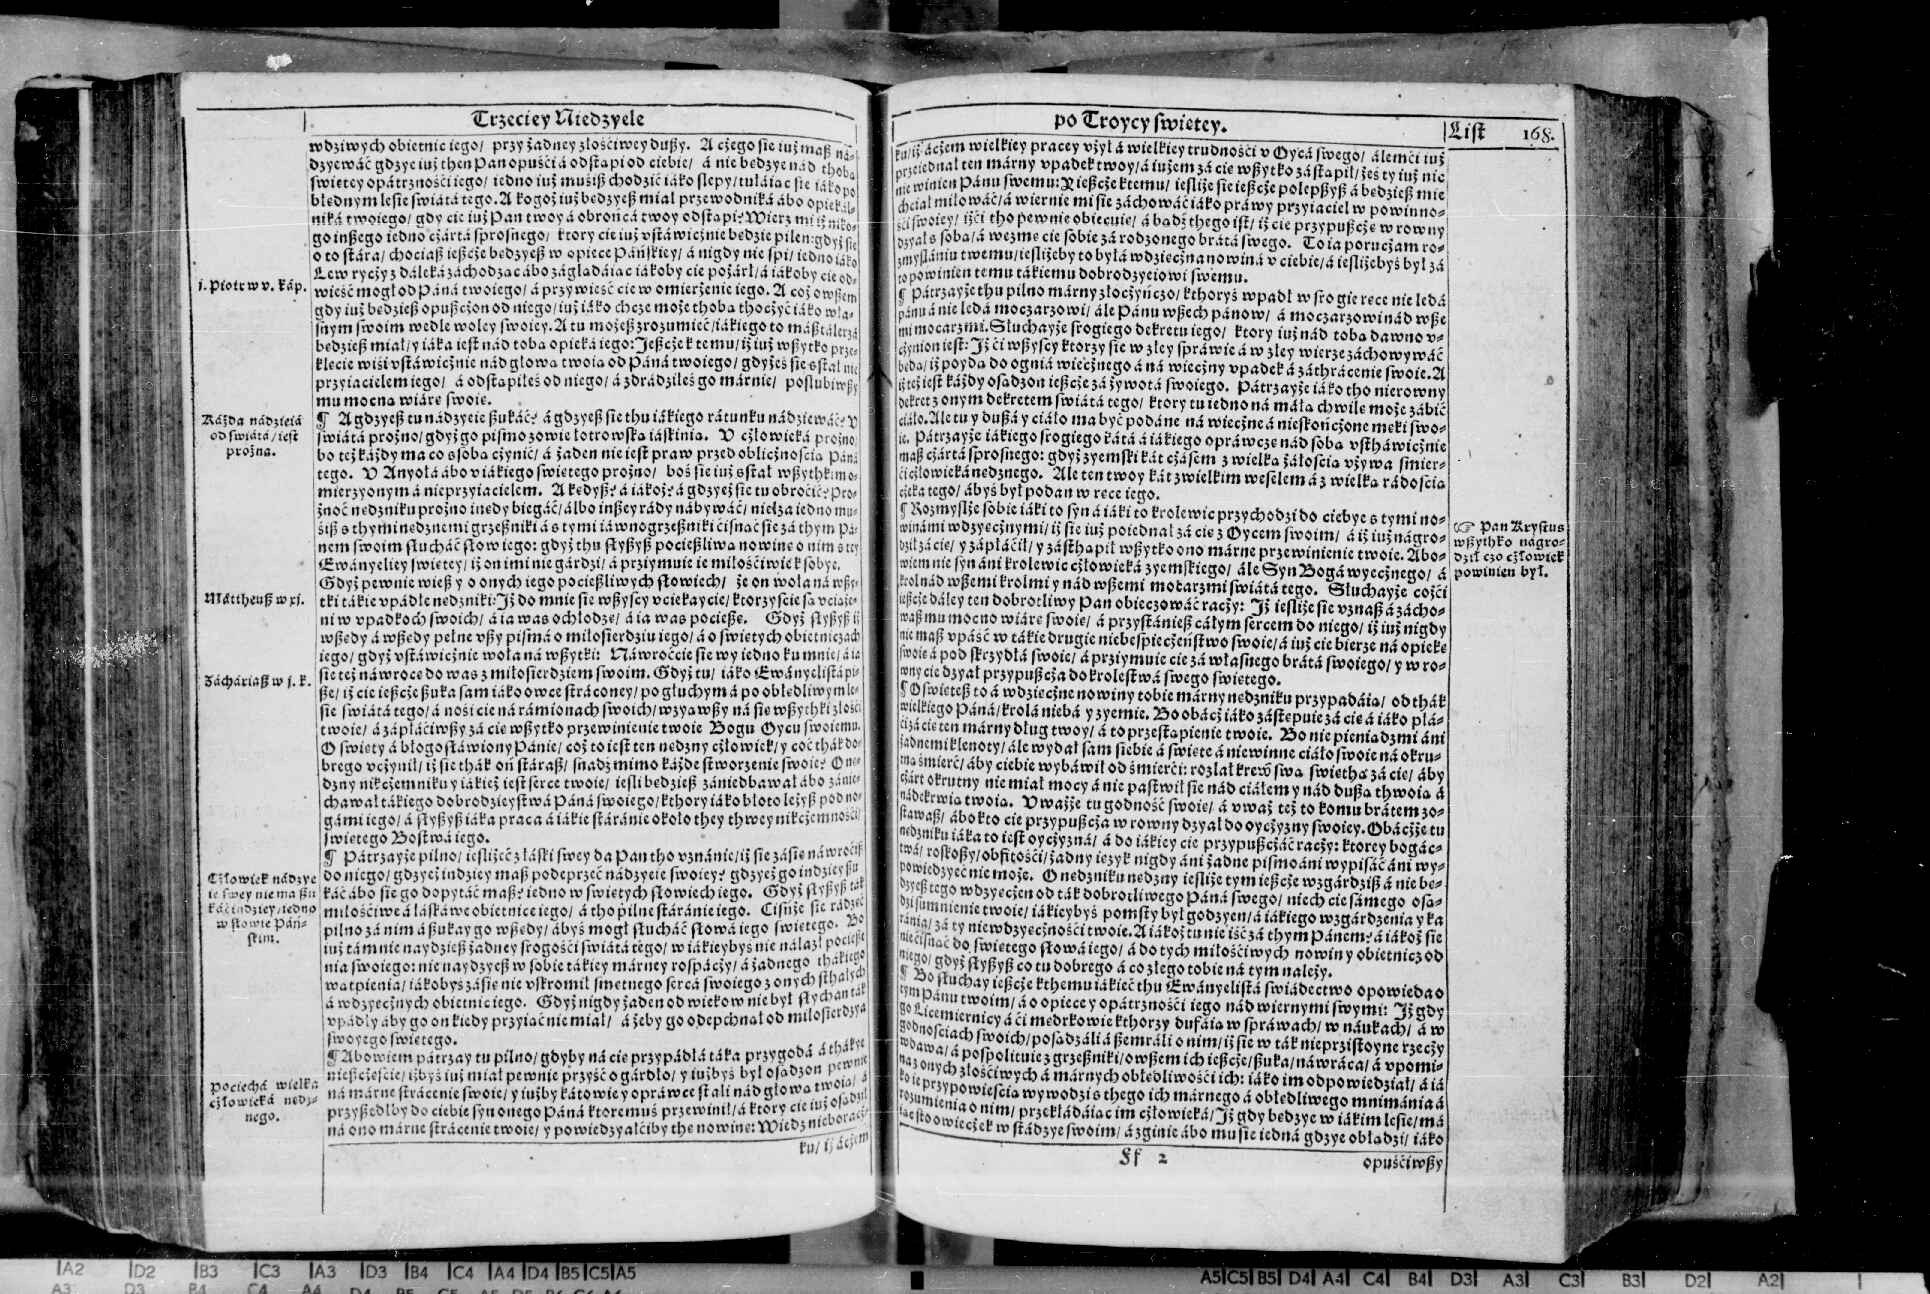 Trzeciey Niedzyele
wdziwych obietnic iego/ przy żadney złośćiwey dußy. A cżego sie iuż maß ná-
dzyewáć gdzye iuż then Pan opuśći á odstąpi od ciebie/ á nie bedzye nád thobą
swietey opátrznośći iego/ iedno iuż muśiß chodźić iáko slepy/ tułáiąc sie iáko po
błednym lesie swiátá tego. A kogoż iuż bedzyeß miał przewodniká ábo opiekál-
niká twoiego/ gdy cie iuż Pan twoy á obrońcá twoy odstąpi? Wierz mi iż niko-
go inßego iedno cżártá sprosnego/ ktory cie iuż vstáwicżnie bedzie pilen: gdyż sie
o to stára/ chociaß ießcże bedzyeß w opiece Páńskiey/ á nigdy nie spi/ iedno iáko
Lew rycży z dáleká záchodząc ábo záglądáiąc iákoby cie pożárł/ á iákoby cie od-
wieść mogł od Páná twoiego/ á przywieść cie w omierżenie iego. A coż owßem
gdy iuż bedzieß opußcżon od niego/ iuż iáko chcze może thobą thocżyć iáko wła-
snym swoim wedle woley swoiey. A tu możeß zrozumieć/ iákiego to maß tálerzá
bedzieß miał/ y iáka iest nád tobą opieká iego: Jeßcże k temu/ iż iuż wßytko prze-
klęcie wiśi vstáwicżnie nád głową twoią od Páná twoiego/ gdyżeś sie sstał nie
przyiacielem iego/ á odstąpiłeś od niego/ á zdrádźiłeś go márnie/ poslubiwßy
mu mocną wiáre swoie.
¶ A gdzyeß tu nádzyeie ßukáć? á gdzyeß sie thu iákiego rátunku nádziewáć? V
swiátá prożno/ gdyż go pismo zowie łotrowską iáskinią. V cżłowieká prożno/
bo też káżdy ma co s sobą cżynić/ á żaden nie iest praw przed oblicżnośćią Páná
tego. V Anyołá ábo v iákiego swietego prożno/ boś sie iuż sstał wßythkim o-
mierzyonym á nieprzyiacielem. A kedyß? á iákoż? á gdzyeż sie tu obroćić? Pro-
żnoć nedzniku prożno inedy biegáć/ álbo inßey rády nábywáć/ nielza iedno mu-
śiß s thymi nedznemi grzeßniki á s tymi iáwnogrzeßniki ćisnąć sie zá thym Pá-
nem swoim słucháć słow iego: gdyż thu słyßyß poćießliwą nowine o nim s tey
Ewányeliey swietey/ iż on imi nie gárdźi/ á przyimuie ie miłośćiwie k sobye.
Gdyż pewnie wieß y o onych iego poćießliwych słowiech/ że on woła ná wßy-
tki tákie vpádłe nedzniki: Jż do mnie sie wßyscy vciekaycie/ ktorzyście są vciąże-
ni w vpadkoch swoich/ á ia was ochłodze/ á ia was poćieße. Gdyż słyßyß iż
wßędy á wßędy pełne vßy pismá o miłosierdziu iego/ á o swietych obietniczách
iego/ gdyż vstáwicżnie woła ná wßytki: Náwroććie sie wy iedno ku mnie/ á ia
sie też náwroce do was z miłosierdziem swoim. Gdyż tu/ iáko Ewányelistá pi-
ße/ iż cie ießcże ßuka sam iáko owce stráconey/ po głuchym á po obłedliwym le-
sie swiátá tego/ á nośi cie ná rámionach swoich/ wzyąwßy ná sie wßythki złośći
twoie/ á zápłáćiwßy zá cie wßytko przewinienie twoie Bogu Oycu swoiemu.
O swiety á błogosłáwiony Pánie/ coż to iest ten nedzny cżłowiek/ y coć thák do-
brego vcżynił/ iż sie thák oń stáraß/ snadź mimo káżde stworzenie swoie? O ne-
dzny nikcżemniku y iákież iest serce twoie/ iesli bedzieß zániedbawał ábo zánie-
chawał tákiego dobrodzieystwá Páná swoiego/ kthory iáko błoto leżyß pod no-
gámi iego/ á słyßyß iáka praca á iákie stáránie około they thwey nikcżemnośći/
swietego Bostwá iego.
¶ Pátrzayże pilno/ iesliżeć z łáski swey da Pan tho vznánie/ iż sie zásie náwroćiß
do niego/ gdzyeż indziey maß podeprzeć nádzyeie swoiey? gdzyeż go indziey ßu
káć ábo sie go dopytáć maß? iedno w swietych słowiech iego. Gdyż słyßyß ták
miłośćiwe á łáskáwe obietnice iego/ á tho pilne stáránie iego. Ciśniże sie rádzeć
pilno zá nim á ßukay go wßędy/ ábyś mogł słucháć słowá iego swietego. Bo
iuż tám nie naydzieß żadney srogośći swiátá tego/ w iákieybyś nie nálazł poćieße
nia swoiego: nie naydzyeß w sobie tákiey márney rospácży/ á żadnego thákiego
wątpienia/ iákobyś zásie nie vskromił smetnego sercá swoiego z onych sthałych
á wdzyecżnych obietnic iego. Gdyż nigdy żaden od wiekow nie był słychan ták
vpádły áby go on kiedy przyiąć nie miał/ á żeby go odepchnął od miłosierdzya
swoyego swietego.
¶ Abowiem pátrzay tu pilno/ gdyby ná cie przypádłá táka przygodá á tháķye
nießcżeście/ iżbyś iuż miał pewnie przyść o gárdło/ y iużbyś był osądzon pewnie
ná márne strácenie swoie/ y iużby kátowie y oprawce stali nád głową twoią/ á
przyßedłby do ćiebie syn onego Páná ktoremuś przewinił/ á ktory cie iuż osądził
ná ono márne strácenie twoie/ y powiedzyałćiby the nowine: Wiedz nieboracż-
ku/ iż ácżem
j. Piotr w v. káp.
Káżda nádzieiá
od swiátá/ iest
prożna.
Máttheuß w xj.
Záchariaß w j. k.
Cżłowiek nádzye
ie swey nie ma ßu
káć indziey/ iedno
w słowie Páń-
skim.
Poćiechá wielka
cżłowieká nedz-
nego.
po Troycy swietey.
List 168.
ku/ iż ácżem wielkiey pracey vżył á wielkiey trudnośći v Oycá swego/ álemći iuż
przeiednał ten márny vpadek twoy/ á iużem zá cie wßytko zástąpił/ żeś ty iuż nic
nie winien Pánu swemu: Y ießcże k temu/ iesliże sie ießcże polepßyß á bedzieß mie
chćiał miłowáć/ á wiernie mi sie záchowáć iáko práwy przyiaciel w powinno-
śći swoiey/ iżći tho pewnie obiecuie/ á bądź thego ist/ iż cie przypußcże w rowny
dzyał s sobą/ á wezmę cie sobie zá rodzonego brátá swego. To ia porucżam ro-
zmyslániu twemu/ iesliżeby to byłá wdziecżna nowiná v ciebie/ á iesliżebyś był zá
to powinien temu tákiemu dobrodzyeiowi swemu.
¶ Pátrzayże thu pilno márny złocżyńczo/ kthoryś wpadł w srogie rece nie ledá
pánu á nie ledá moczarzowi/ ále Pánu wßech pánow/ á moczarzowi nád wße
mi mocarzmi. Słuchayże srogiego dekretu iego/ ktory iuż nád tobą dawno v-
cżynion iest: Jż ći wßyscy ktorzy sie w zley spráwie á w zley wierze záchowywáć
będą/ iż poydą do ogniá wiecżnego á ná wiecżny vpadek á záthrácenie swoie. A
iż też iest káżdy osądzon ießcże zá żywotá swoiego. Pátrzayże iáko tho nierowny
dekret z onym dekretem swiátá tego/ ktory tu iedno ná máłą chwile może zábić
ciáło. Ale tu y dußá y ciáło ma być podáne ná wiecżne á nieskońcżone męki swo-
ie. Pátrzayże iákiego srogiego kátá á iákiego oprawcze nád sobą vstháwicżnie
maß cżártá sprosnego: gdyż zyemski kát cżásem z wielką żáłośćią vżywa śmier-
ći cżłowieká nedznego. Ale ten twoy kát z wielkim weselem á z wielką rádośćią
cżeka tego/ ábyś był podan w rece iego.
¶ Rozmyslże sobie iáki to syn á iáki to krolewic przychodzi do ciebye s tymi no-
winámi wdzyecżnymi/ iż sie iuż poiednał zá cie z Oycem swoim/ á iż iuż nágro-
dził zá cie/ y zápłáćił/ y zásthąpił wßytko ono márne przewinienie twoie. Abo-
wiem nie syn áni krolewic cżłowieká zyemskiego/ ále Syn Bogá wyecżnego/ á
krol nád wßemi krolmi y nád wßemi mocarzmi swiátá tego. Słuchayże cożći
ießcże dáley ten dobrotliwy Pan obieczowáć racży: Jż iesliże sie vznaß á zácho-
waß mu mocno wiáre swoie/ á przystánieß cáłym sercem do niego/ iż iuż nigdy
nie maß vpáść w tákie drugie niebespiecżeństwo swoie/ á iuż cie bierze ná opieke
swoie á pod skrzydłá swoie/ á przyimuie cie zá własnego brátá swoiego/ y w ro-
wny cie dzyał przypußcża do krolestwá swego swietego.
¶ Oswieteß to á wdziecżne nowiny tobie márny nedzniku przypadáią/ od thák
wielkiego Páná/ krolá niebá y zyemie. Bo obacż iáko zástepuie zá cie á iáko płá-
ći zá cie ten márny dług twoy/ á to przestąpienie twoie. Bo nie pieniądzmi áni
żadnemi klenoty/ ále wydał sam siebie á swiete á niewinne ciáło swoie ná okru-
tną śmierć/ áby ciebie wybáwił od śmierći: rozlał krew swą swiethą zá cie/ áby
cżárt okrutny nie miał mocy á nie pástwił sie nád ciáłem y nád dußą thwoią á
nádekrwią twoią. Vważże tu godność swoie/ á vważ też to komu brátem zo-
stawaß/ ábo kto cie przypußcża w rowny dzyał do oycżyzny swoiey. Obacżże tu
nedzniku iáka to iest oycżyzná/ á do iákiey cie przypußcżáć racży: ktorey bogác-
twá/ roskoßy/ obfitośći/ żadny ięzyk nigdy áni żadne pismo áni wypisáć áni wy-
powiedzyeć nie może. O nedzniku nedzny iesliże tym ießcże wzgárdźiß á nie be-
dzyeß tego wdzyecżen od ták dobrotliwego Páná swego/ niech cie sámego osą-
dzi sumnienie twoie/ iákieybyś pomsty był godzyen/ á iákiego wzgárdzenia y ka
ránia/ zá tę niewdzyecżność twoie. A iákoż tu nie iść zá thym Pánem? á iákoż sie
nie ćisnąć do swietego słowá iego/ á do tych miłośćiwych nowin y obietnicz od
niego/ gdyż słyßyß co tu dobrego á co złego tobie ná tym należy.
¶ Bo słuchay ießcże k themu iákieć thu Ewányelistá swiádectwo opowieda o
tym Pánu twoim/ á o opiece y opátrznośći iego nád wiernymi swymi: Jż gdy
go Licemiernicy á ći mędrkowie kthorzy dufáią w spráwach/ w náukach/ á w
godnośćiach swoich/ posądzáli á ßemráli o nim/ iż sie w ták nieprzistoyne rzecży
wdawa/ á pospolituie z grzeßniki/ owßem ich ießcże/ ßuka/ náwraca/ á vpomi-
na z onych złośćiwych á márnych obłedliwośći ich: iáko im odpowiedział/ á iá
ko ie przypowieśćią wywodzi s thego ich márnego á obłedliwego mnimánia á
rozumienia o nim/ przekłádáiąc im cżłowieká/ Jż gdy bedzye w iákim lesie/ má
iąc sto owiecżek w stádzye swoim/ á zginie ábo mu sie iedná gdzye obłądzi/ iáko
Ff 2
opuśćiwßy
☞ Pan Krystus
wßythko nágro-
dził czo cżłowiek
powinien był.